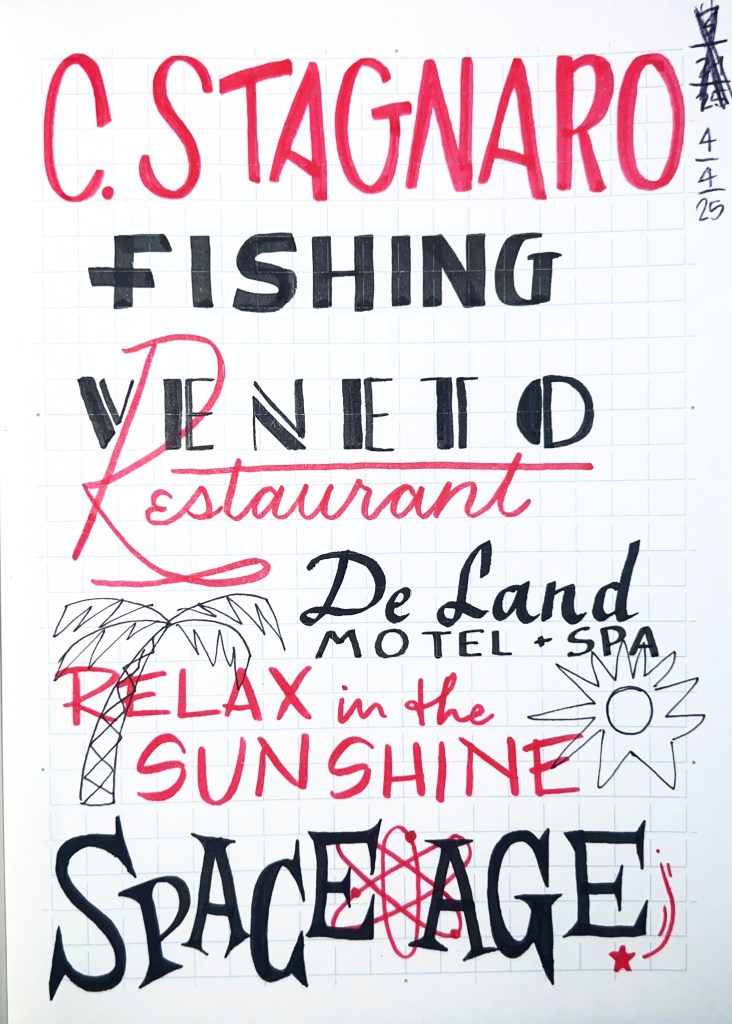 C. STAGNARO
FISHING
VENETO
Restaurant
De Land
MOTEL + SPA
RELAX in the
SUNSHINE
SPACE AGE
4
4
25